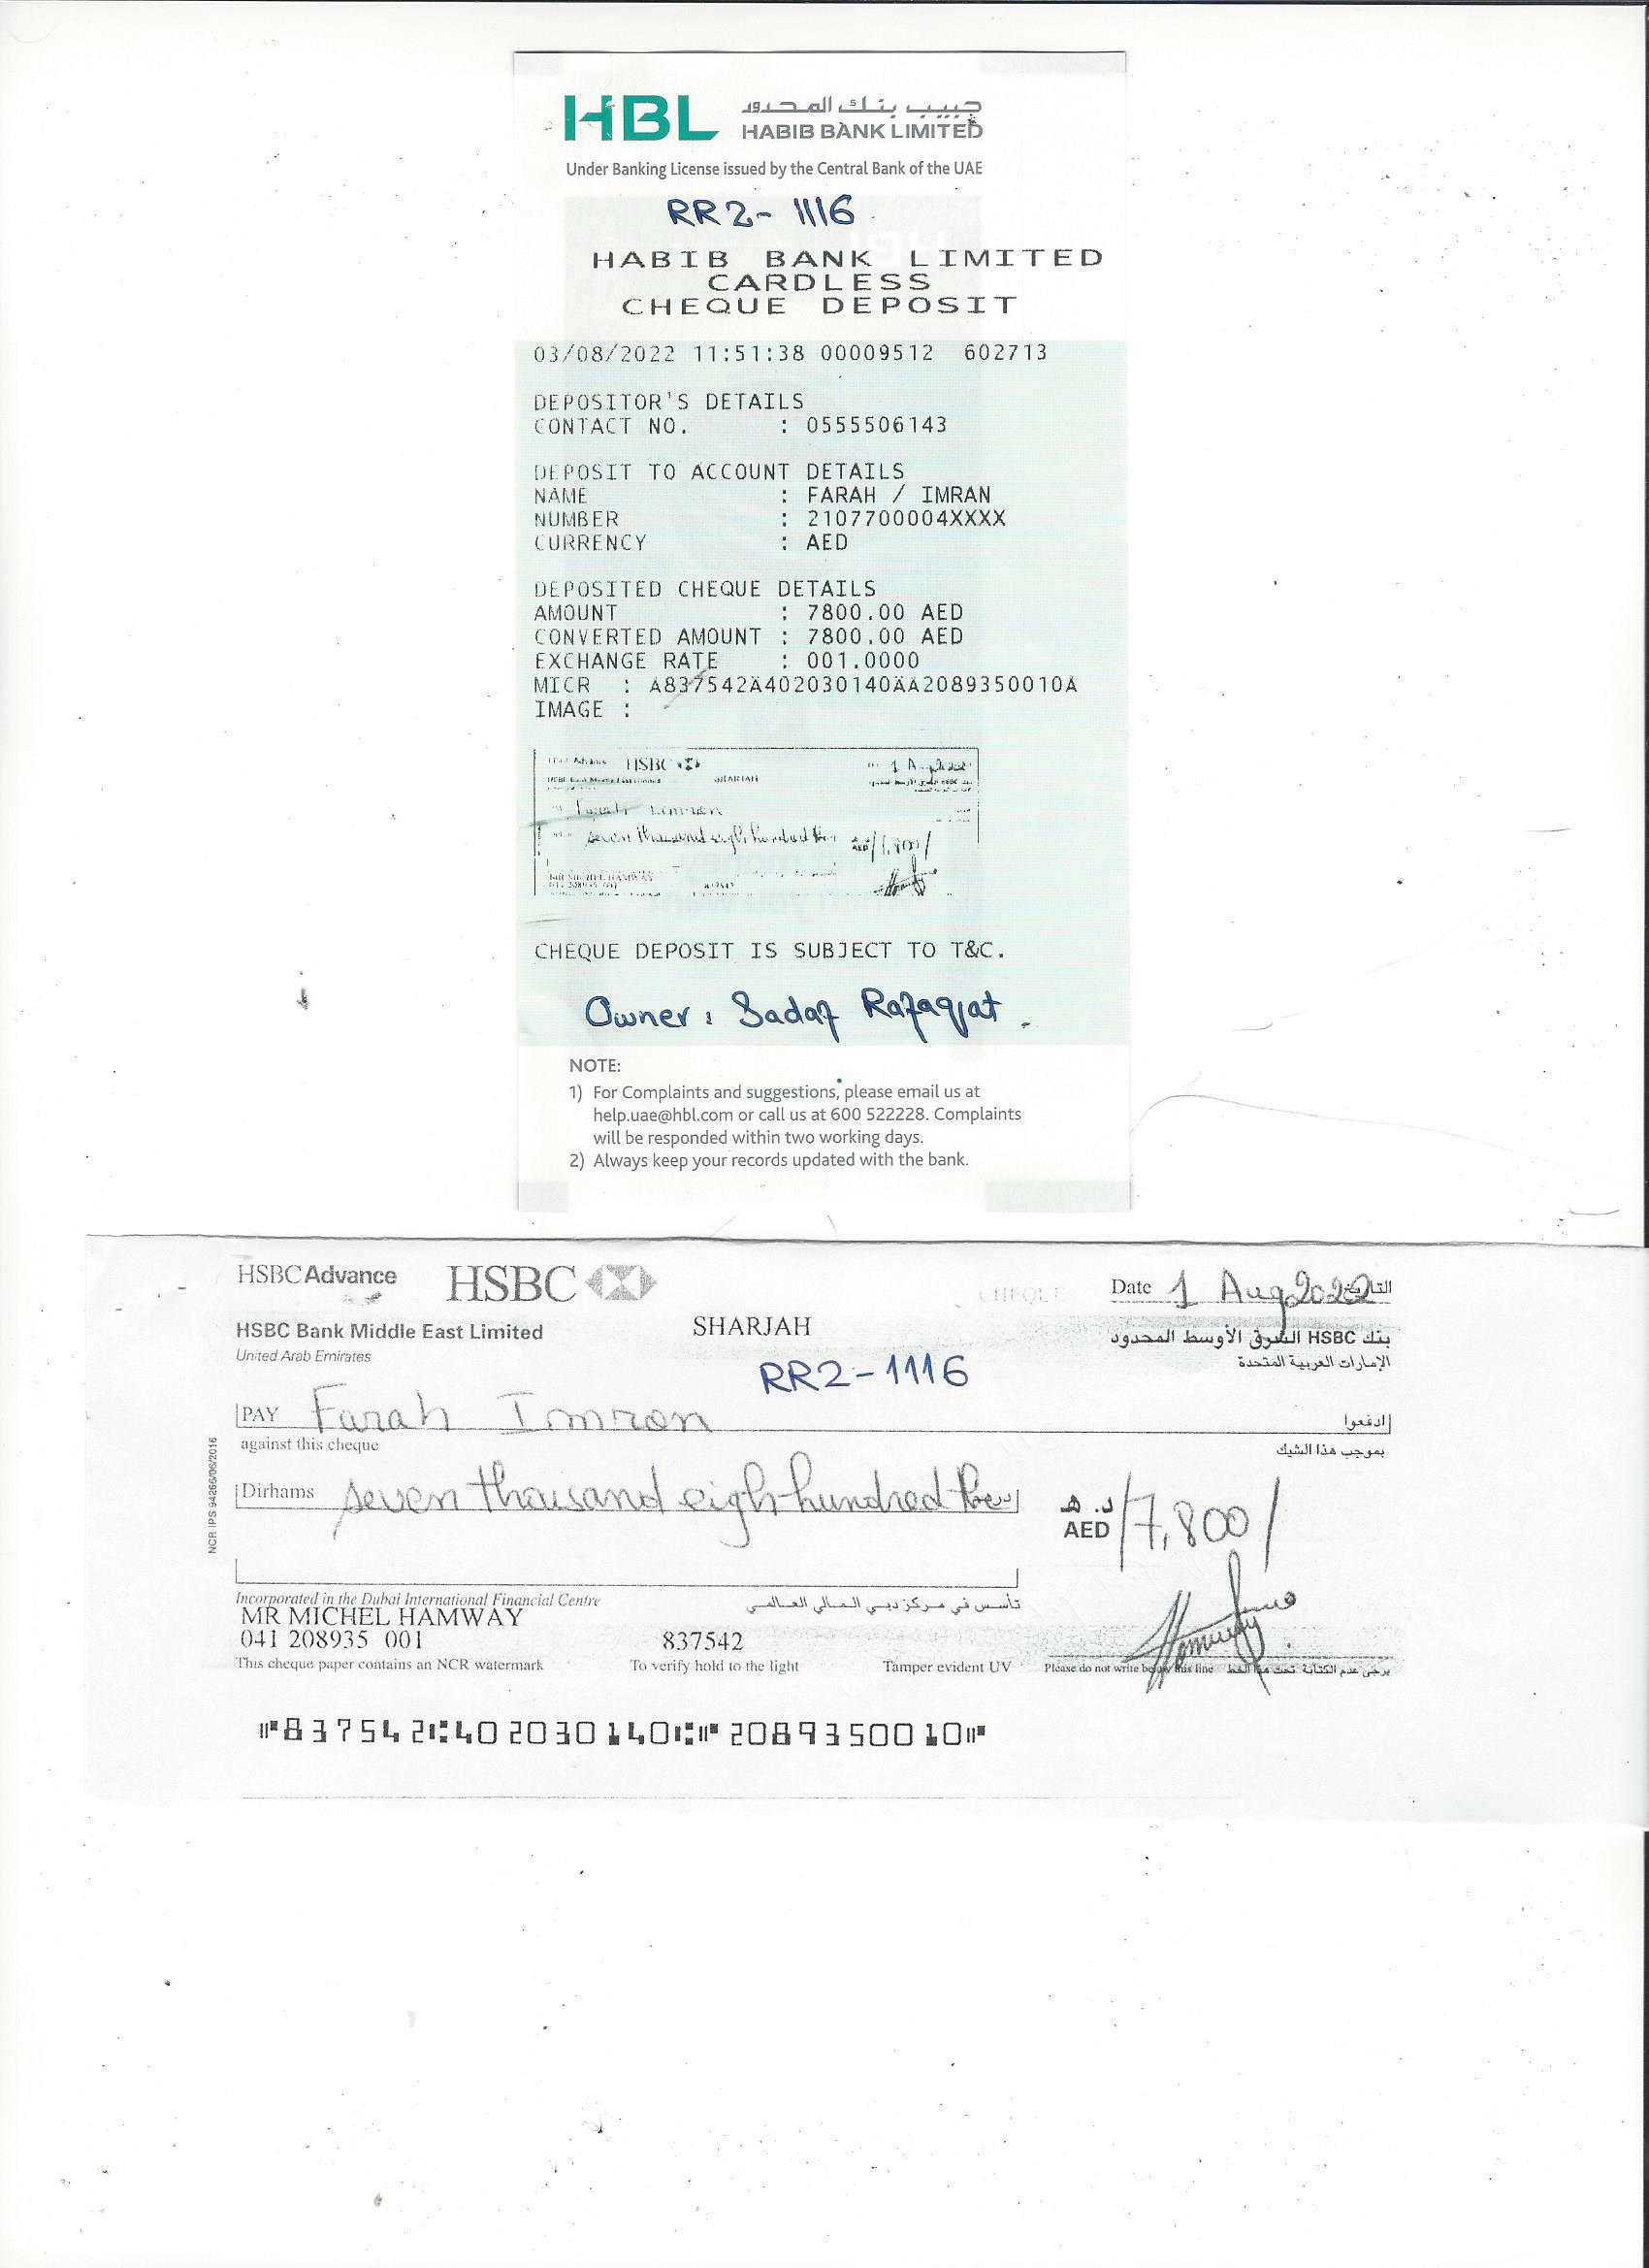 HBL حبيب بنك المحدود
HABIB BANK LIMITED
Under Banking License issued by the Central Bank of the UAE
RR2-1116
HABIB BANK LIMITED
CARDLESS
CHEQUE DEPOSIT
03/08/2022 11:51:38 00009512 602713
DEPOSITOR'S DETAILS
CONTACT NO. : 0555506143
DEPOSIT TO ACCOUNT DETAILS
NAME : FARAH / IMRAN
NUMBER : 2107700004XXXX
CURRENCY : AED
DEPOSITED CHEQUE DETAILS
AMOUNT : 7800.00 AED
CONVERTED AMOUNT : 7800.00 AED
EXCHANGE RATE : 001.0000
MICR : A837542A402030140AA2089350010A
IMAGE :
HSBC
SHARJAH
seven thousand eigh hundred
CHEQUE DEPOSIT IS SUBJECT TO T&C.
Owner : Sadaf Rafaqat .
NOTE:
1) For Complaints and suggestions, please email us at
help.uae@hbl.com or call us at 600 522228. Complaints
will be responded within two working days.
2) Always keep your records updated with the bank.
HSBC Advance HSBC CHEQUE Date 1 Aug 2022 التاريخ
HSBC Bank Middle East Limited SHARJAH بنك HSBC الشرق الأوسط المحدود
United Arab Emirates الإمارات العربية المتحدة
RR2-1116
PAY Farah Imran ادفعوا
against this cheque بموجب هذا الشيك
Dirhams seven thousand eigh hundred د.هـ
AED /7,800/
NCR IPS 94266/06/2016
Incorporated in the Dubai International Financial Centre تأسس في مركز دبي المالي العالمي
MR MICHEL HAMWAY
041 208935 001 837542
This cheque paper contains an NCR watermark To verify hold to the light Tamper evident UV Please do not write below this line يرجى عدم الكتابة تحت هذا الخط
⑈837542⑆402030140⑆⑈2089350010⑈